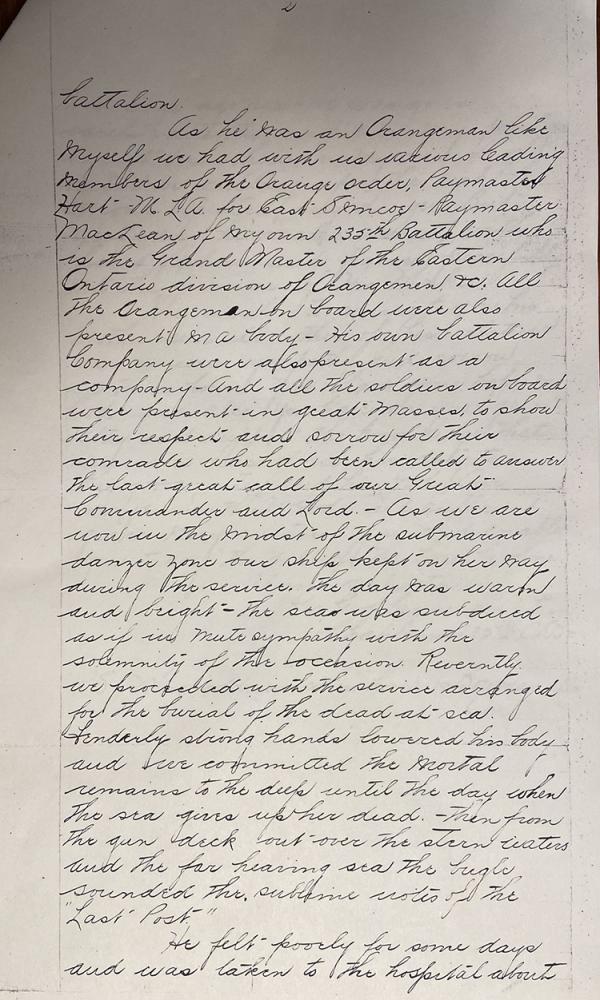 2
battalion.
As he was an Orangeman like
myself we had with us various leading
members of the Orange order, Paymaster
Hart - M.L.A. for East Simcoe - Paymaster
MacLean of my own 235th Battalion who
is the Grand Master of the Eastern
Ontario division of Orangemen &c. All
the Orangeman on board were also
present in a body - His own battalion
Company were also present as a
company - And all the soldiers on board
were present in great masses, to show
their respect and sorrow for their
comrade who had been called to answer
the last great call of our Great
Commander and Lord. - As we are
now in the midst of the submarine
danger zone our ship kept on her way
during the service. The day was warm
and bright - the sea was subdued
as if in mute sympathy with the
solemnity of the occasion. Reverently
we proceeded with the service arranged
for the burial of the dead at sea.
Tenderly strong hands lowered his body
and we committed the mortal
remains to the deep until the day when
the sea gives up her dead. - Then from
the gun deck out over the stern waters
and the far hearing sea the bugle
sounded the sublime notes of the
"Last Post"
He felt poorly for some days
and was taken to the hospital about